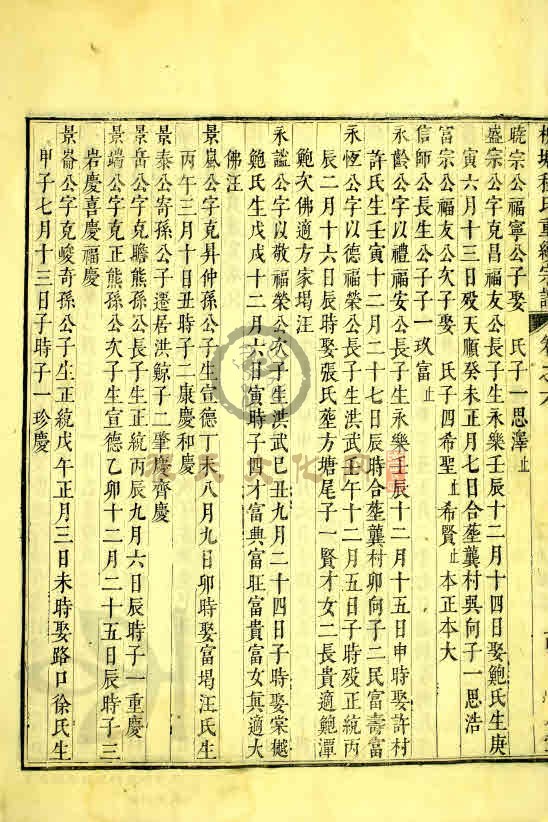 曉宗公福寧公子娶　氏子一思澤止
盛宗公字克昌福友公長子生永樂壬辰十二月十四日娶鮑氏生庚
寅六月十三日歿天順癸未正月七日合塟龔村巽向子一思浩
富宗公福友公次子娶　氏子四希聖止希賢止本正本大
信師公長生公子子一玖富止
永齡公字以禮福安公長子生永樂壬辰十二月十五日申時娶許村
許氏生壬寅十二月二十七日辰時合塟龔村卯向子二民富壽富
永恆公字以德福榮公長子生洪武壬午十二月五日子時歿正統丙
辰二月十六日辰時娶張氏塟方塘尾子一賢才女二長貴適鮑潭
鮑次佛適方家堨汪
永謐公字以敬福榮公次子生洪武己丑九月二十四日子時娶棠樾
鮑氏生戊戌十二月六日寅時子四才富典富旺富貴富女眞適大
佛汪
景嵐公字克昇仲孫公子生宣德丁未八月九日卯時娶富堨汪氏生
丙午三月十日丑時子二康慶和慶
景泰公寄孫公子遷居洪鯨子二肇慶齊慶
景岳公字克瞻熊孫公長子生正統丙辰九月六日辰時子一重慶
景端公字克正熊孫公次子生宣德乙卯十二月二十五日辰時子三
岩慶喜慶福慶
景崙公字克峻奇孫公子生正統戊午正月三日未時娶路口徐氏生
甲子七月十三日子時子一珍慶